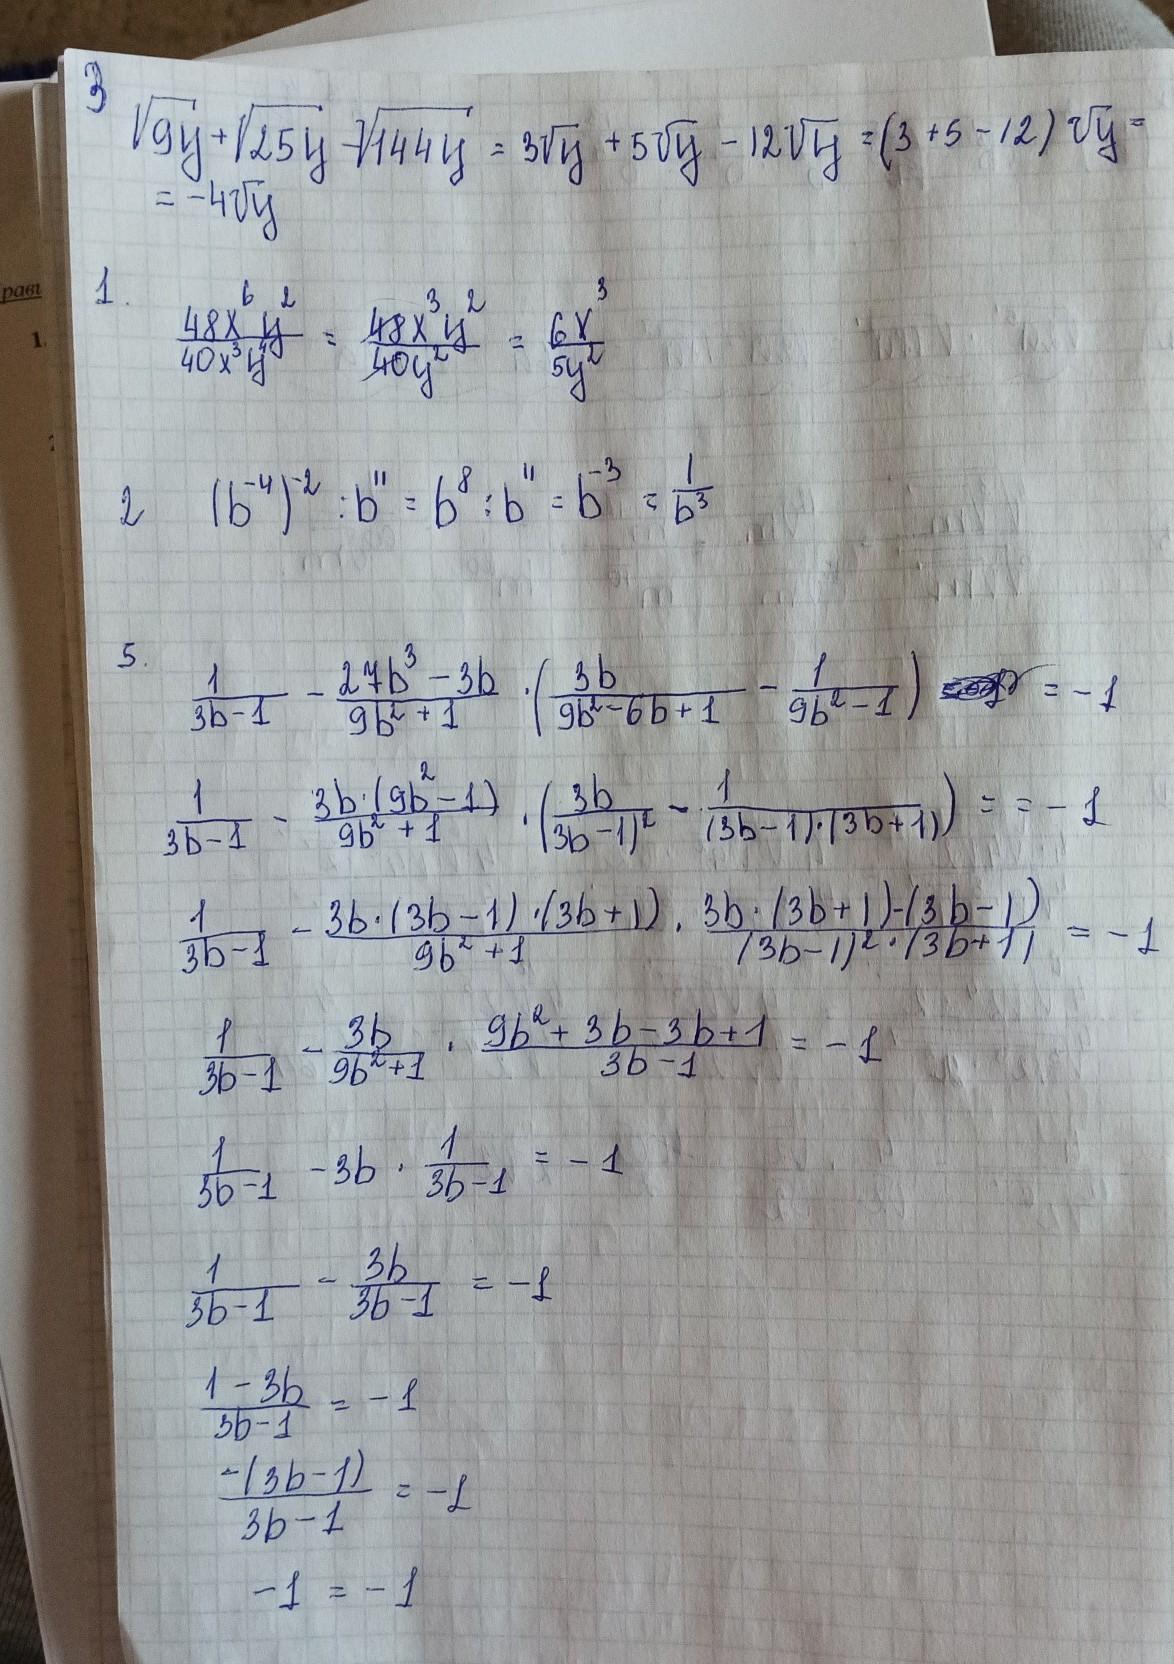 3
√9y + √25y - √144y = 3√y + 5√y - 12√y = (3 + 5 - 12) √y =
= -4√y
1.
48x⁶y²/40x³y⁴ = 48x³y²/40y² = 6x³/5y²
2 (b⁻⁴)⁻² : b¹¹ = b⁸ : b¹¹ = b⁻³ = 1/b³
5.
1/(3b-1) - (27b³-3b)/(9b²+1) · (3b/(9b²-6b+1) - 1/(9b²-1)) = -1
1/(3b-1) - 3b·(9b²-1)/(9b²+1) · (3b/(3b-1)² - 1/((3b-1)·(3b+1))) = = -1
1/(3b-1) - 3b·(3b-1)·(3b+1)/(9b²+1) · (3b·(3b+1)-(3b-1))/((3b-1)²·(3b+1)) = -1
1/(3b-1) - 3b/(9b²+1) · (9b²+3b-3b+1)/(3b-1) = -1
1/(3b-1) - 3b · 1/(3b-1) = -1
1/(3b-1) - 3b/(3b-1) = -1
(1-3b)/(3b-1) = -1
-(3b-1)/(3b-1) = -1
-1 = -1